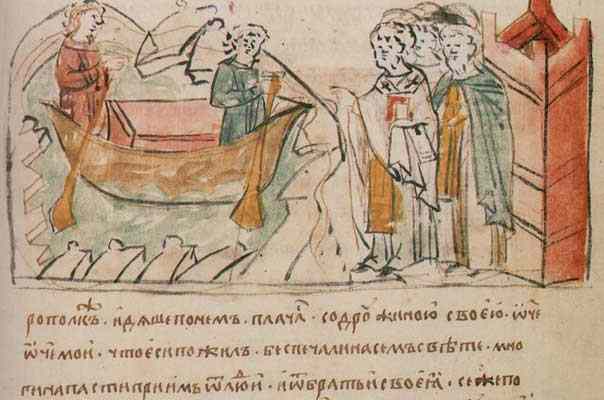 рополкъ · идѧше по немъ · плачѧ · со дрꙋжиною своею · ѿче
ѿче мои · что еси пожилъ · бес печали на семъ свѣте · мно
ги напасти приимъ ѿ люⷣи · и ѿ братьи своеѧ · се же по